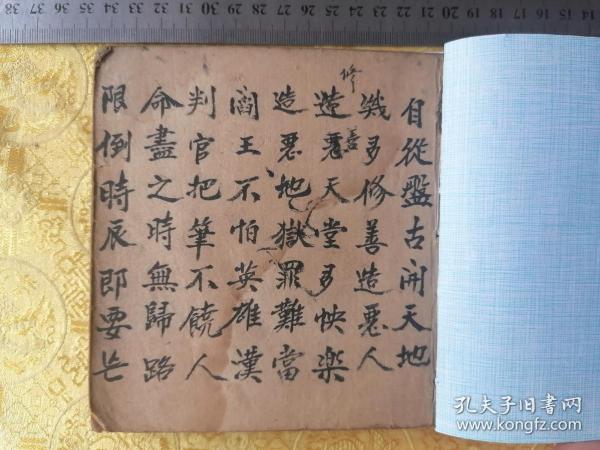 自從盤古開天地
幾多修善造惡人
造惡天堂多快樂
修善
造惡地獄罪難當
閻王不怕英雄漢
判官把筆不饒人
命盡之時無歸路
限倒時辰即要亡
38 37 36 35 34 33 32 31 30 29 28 27 26 25 24 23 22 21 20 19 18 17 16 15 14
孔夫子旧书网